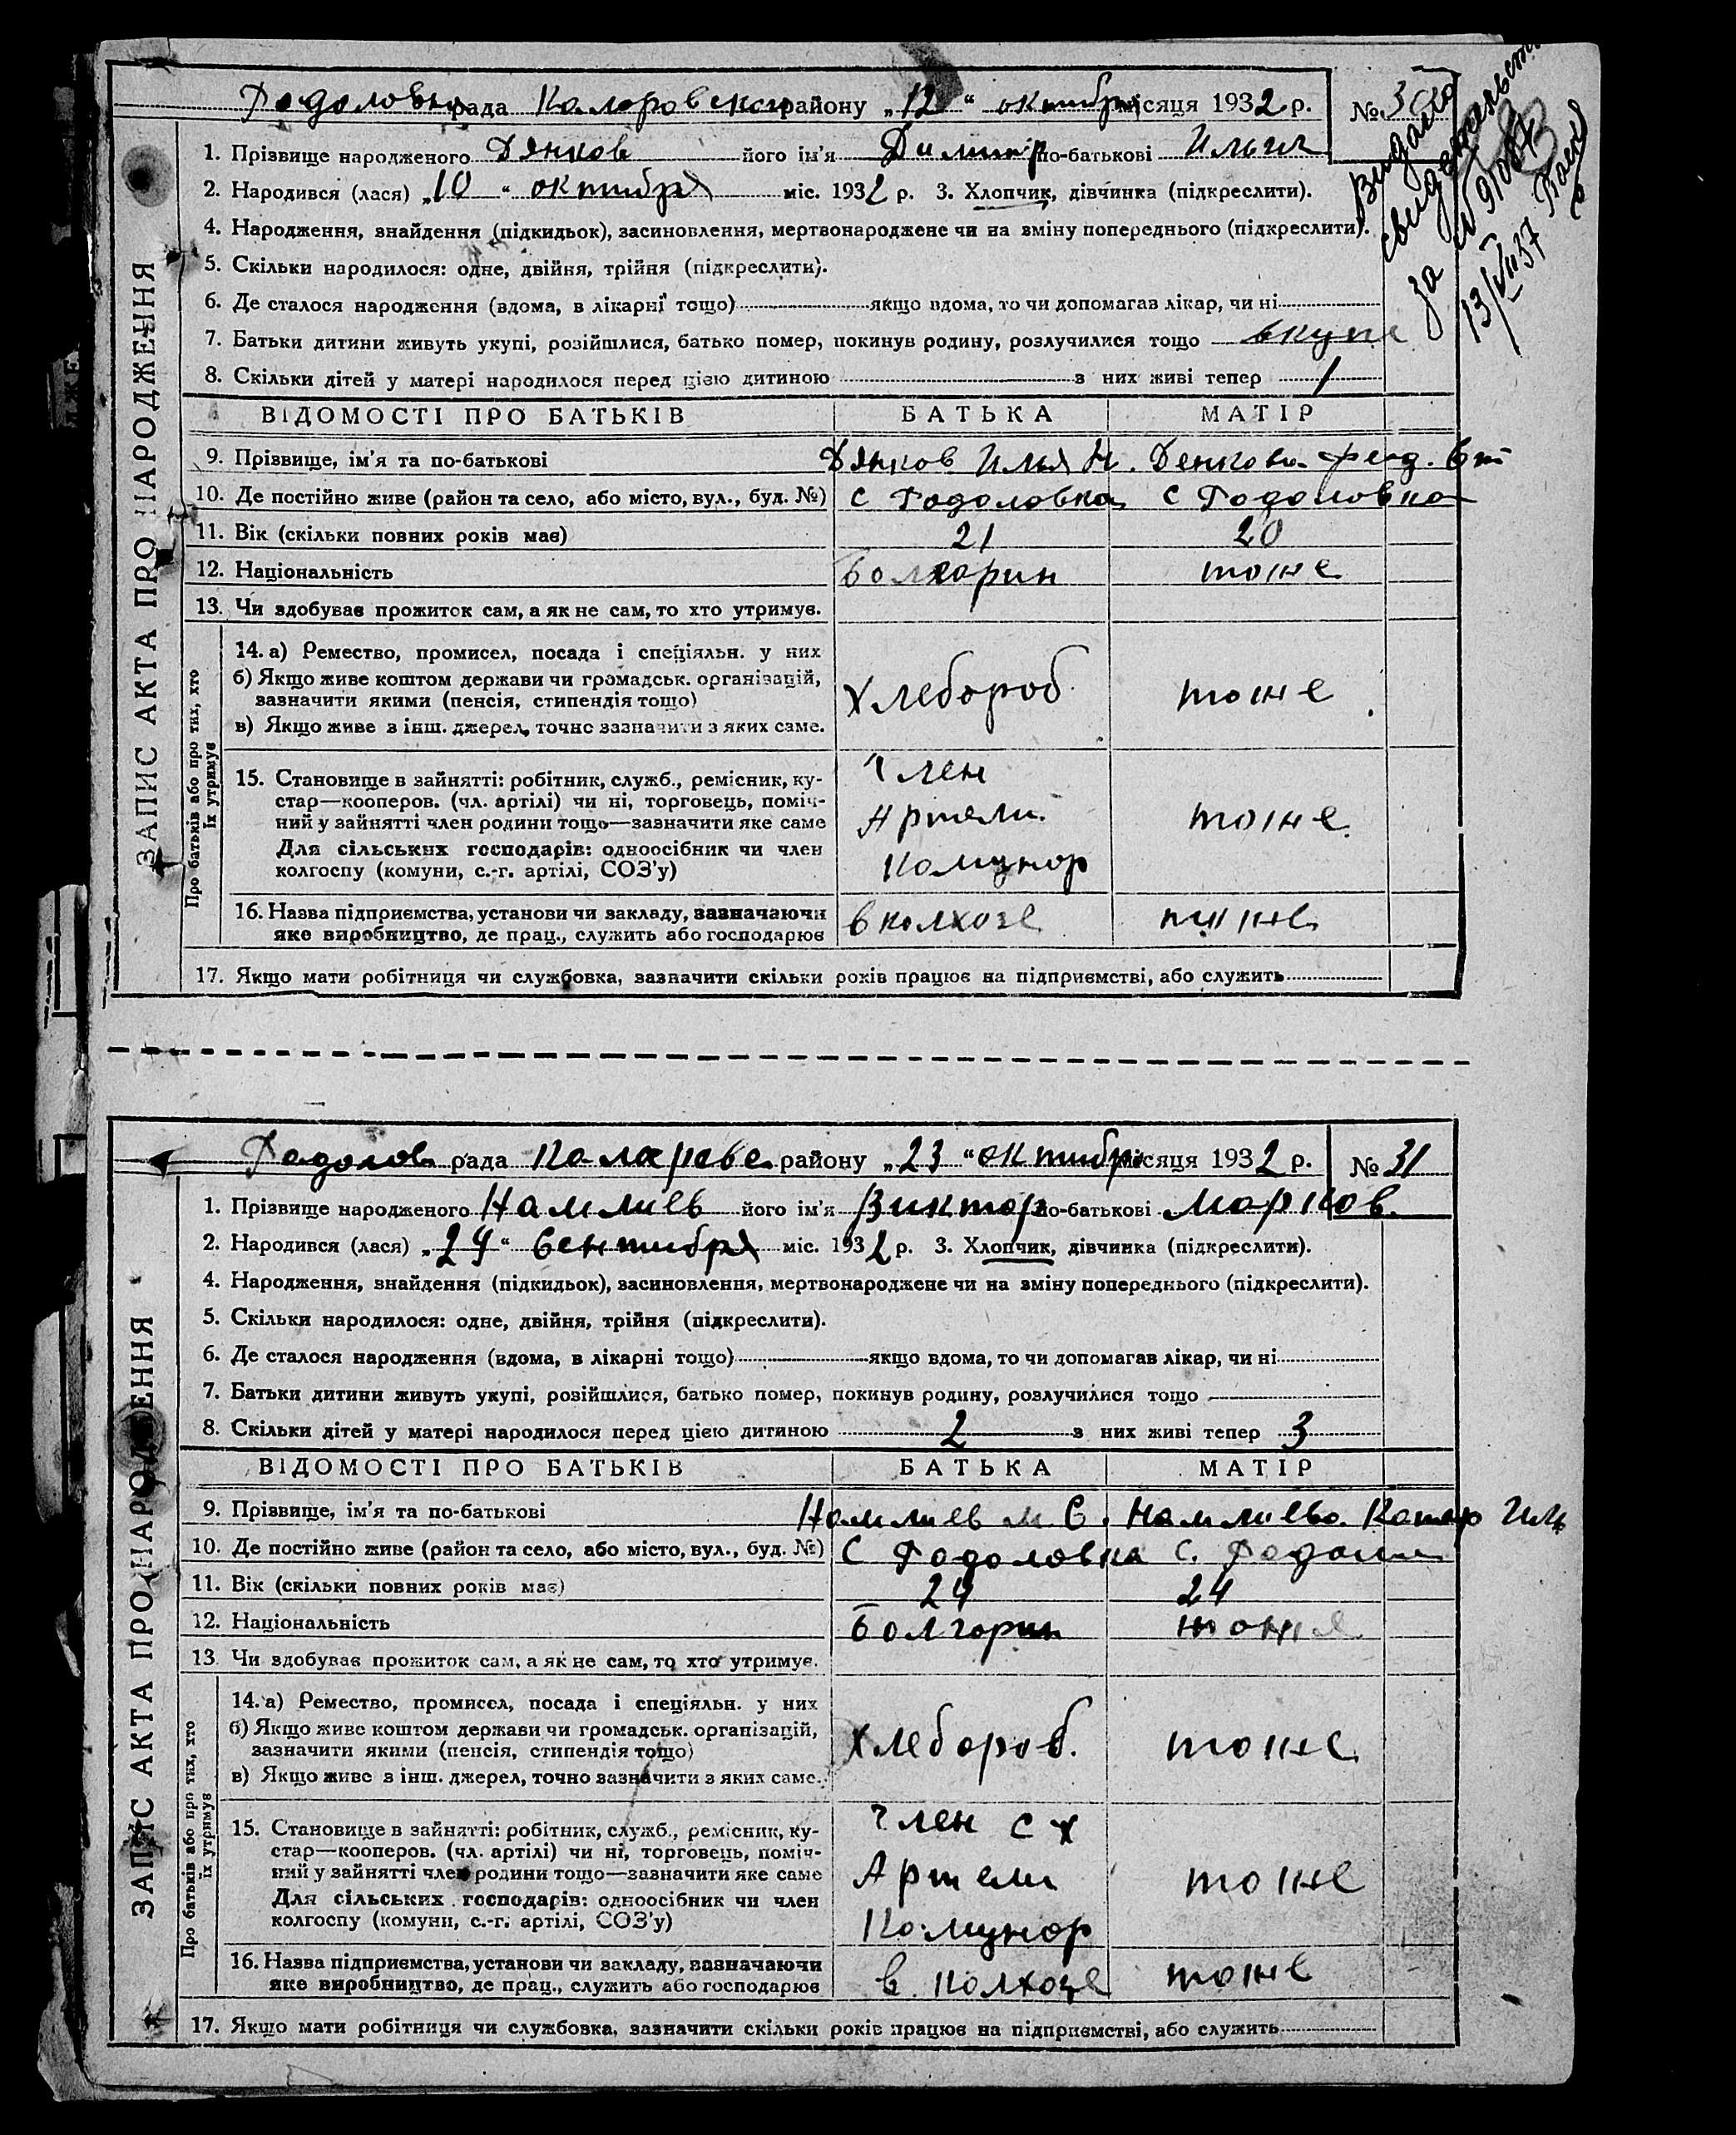 Радоловка рада Коларовского району „12“ октября місяця 1932 р. № 30
1. Прізвище народженого Дянков його ім’я Димитр по-батькові Ильич
2. Народився (лася) „10“ октября міс. 1932 р. 3. Хлопчик, дівчинка (підкреслити).
4. Народження, знайдення (підкидьок), засиновлення, мертвонароджене чи на зміну попереднього (підкреслити).
5. Скільки народилося: одне, двійня, трійня (підкреслити).
6. Де сталося народження (вдома, в лікарні тощо) якщо вдома, то чи допомагав лікар, чи ні
7. Батьки дитини живуть укупі, розійшлися, батько помер, покинув родину, розлучилися тощо вкупе
8. Скільки дітей у матері народилося перед цією дитиною з них живі тепер 1
Видано
свидетельст.
за №
13/VII 37
ЗАПИС АКТА ПРО НАРОДЖЕННЯ
ВІДОМОСТІ ПРО БАТЬКІВ БАТЬКА МАТІР
9. Прізвище, ім’я та по-батькові Дянков Илья Н. Денкова
10. Де постійно живе (район та село, або місто, вул., буд. №) с Радоловка с Радоловка
11. Вік (скільки повних років має) 21 20
12. Національність Болгарин тоже
13. Чи здобуває прожиток сам, а як не сам, то хто утримує.
Про батьків або про тих, хто
їх утримує
14. а) Ремество, промисел, посада і спеціяльн. у них
б) Якщо живе коштом держави чи громадськ. організацій,
зазначити якими (пенсія, стипендія тощо)
в) Якщо живе з інш. джерел, точно зазначити з яких саме.
Хлебороб тоже
15. Становище в зайнятті: робітник, служб., ремісник, ку-
стар—кооперов. (чл. артілі) чи ні, торговець, поміч-
ний у зайнятті член родини тощо—зазначити яке саме
Для сільських господарів: одноосібник чи член
колгоспу (комуни, с.-г. артілі, СОЗ’у)
Член
Артели
Комунар
тоже
16. Назва підприємства, установи чи закладу, зазначаючи
яке виробництво, де прац., служить або господарює
в колхозе тоже
17. Якщо мати робітниця чи службовка, зазначити скільки років працює на підприємстві, або служить
Радолов рада Коларовс району „23“ октября місяця 1932 р. № 31
1. Прізвище народженого Намлиев його ім’я Виктор по-батькові Марков.
2. Народився (лася) „24“ Сентября міс. 1932 р. 3. Хлопчик, дівчинка (підкреслити).
4. Народження, знайдення (підкидьок), засиновлення, мертвонароджене чи на зміну попереднього (підкреслити).
5. Скільки народилося: одне, двійня, трійня (підкреслити).
6. Де сталося народження (вдома, в лікарні тощо) якщо вдома, то чи допомагав лікар, чи ні
7. Батьки дитини живуть укупі, розійшлися, батько помер, покинув родину, розлучилися тощо
8. Скільки дітей у матері народилося перед цією дитиною 2 з них живі тепер 3
ЗАПИС АКТА ПРО НАРОДЖЕННЯ
ВІДОМОСТІ ПРО БАТЬКІВ БАТЬКА МАТІР
9. Прізвище, ім’я та по-батькові Намлиев М. С. Намлиева Катер Иль
10. Де постійно живе (район та село, або місто, вул., буд. №) с Радоловка с. Радолов
11. Вік (скільки повних років має) 24 24
12. Національність Болгарин тоже
13. Чи здобуває прожиток сам, а як не сам, то хто утримує.
Про батьків або про тих, хто
їх утримує
14. а) Ремество, промисел, посада і спеціяльн. у них
б) Якщо живе коштом держави чи громадськ. організацій,
зазначити якими (пенсія, стипендія тощо)
в) Якщо живе з інш. джерел, точно зазначити з яких саме.
Хлебороб. тоже
15. Становище в зайнятті: робітник, служб., ремісник, ку-
стар—кооперов. (чл. артілі) чи ні, торговець, поміч-
ний у зайнятті член родини тощо—зазначити яке саме
Для сільських господарів: одноосібник чи член
колгоспу (комуни, с.-г. артілі, СОЗ’у)
Член с х
Артели
Комунар
тоже
16. Назва підприємства, установи чи закладу, зазначаючи
яке виробництво, де прац., служить або господарює
в. колхозе тоже
17. Якщо мати робітниця чи службовка, зазначити скільки років працює на підприємстві, або служить